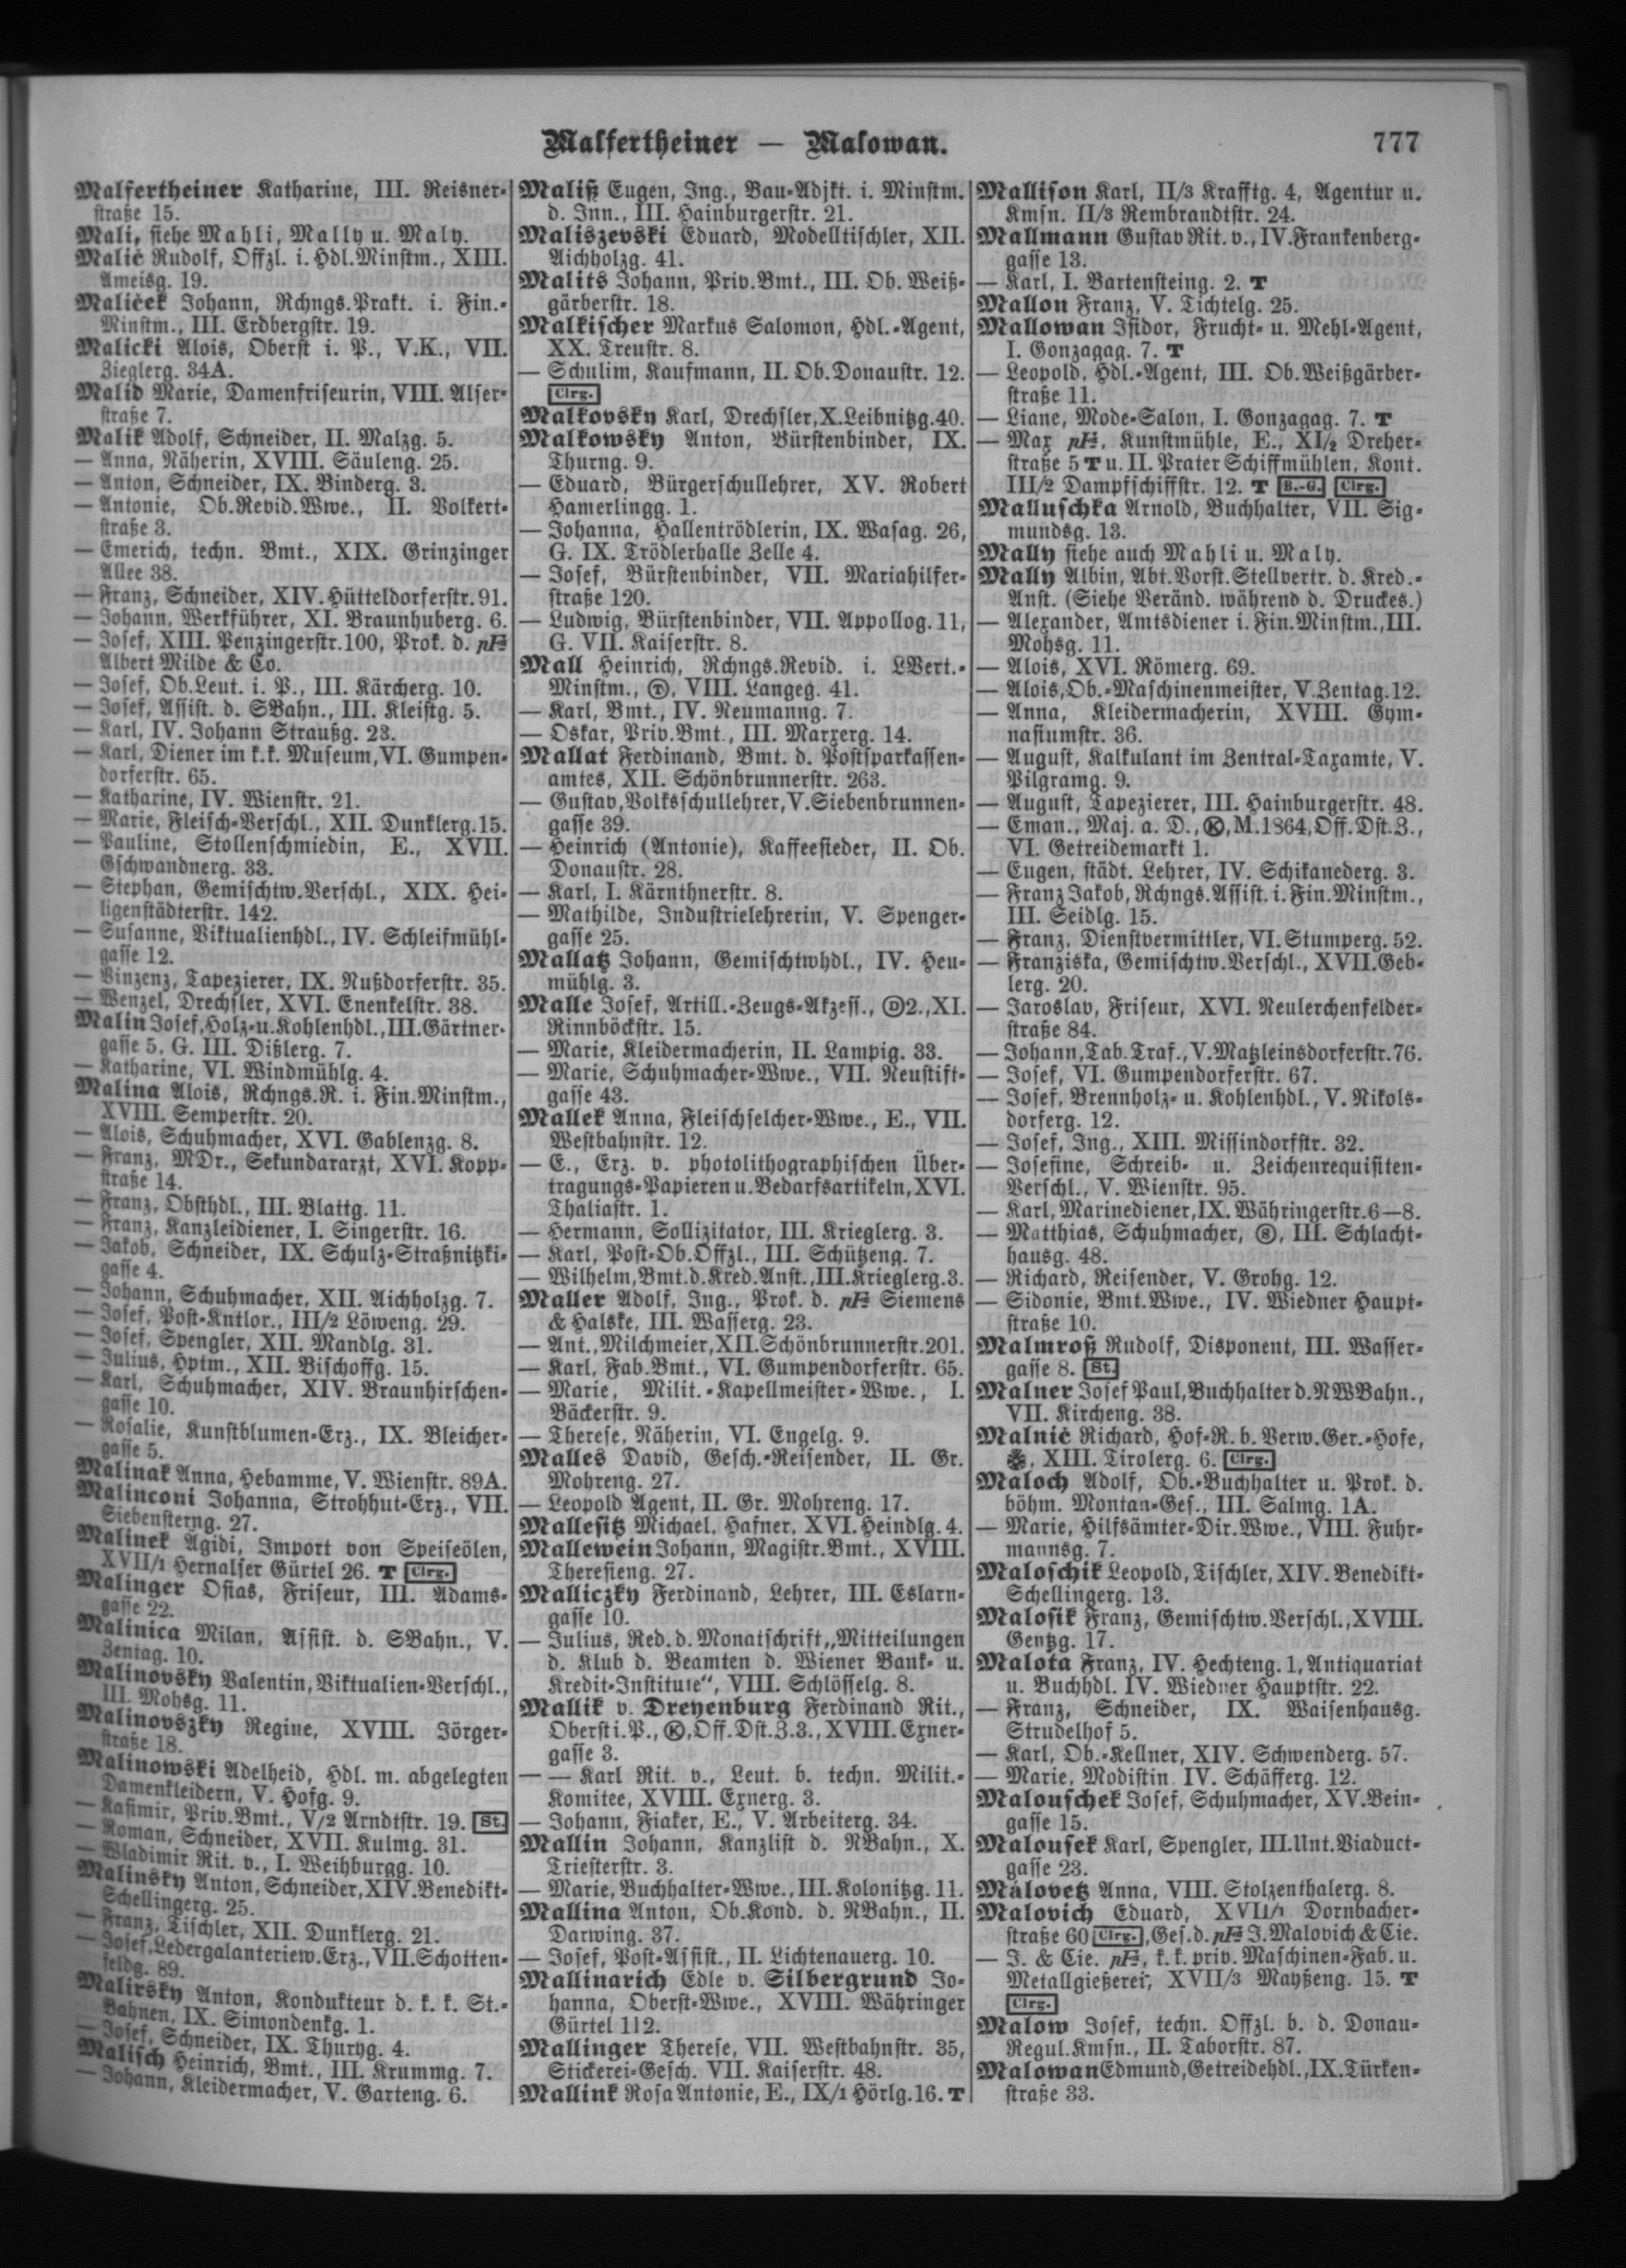 Malfertheiner — Malowan.
777
Malfertheiner Katharine, III. Reisner-
straße 15.
Mali, siehe Mahli, Mally u. Maly.
Malić Rudolf, Offzl. i. Hdl.Minstm., XIII.
Ameisg. 19.
Maliček Johann, Rchngs.Prakt. i. Fin.-
Minstm., III. Erdbergstr. 19.
Malicki Alois, Oberst i. P., V.K., VII.
Zieglerg. 34A.
Malid Marie, Damenfriseurin, VIII. Alser-
straße 7.
Malik Adolf, Schneider, II. Malzg. 5.
— Anna, Näherin, XVIII. Säuleng. 25.
— Anton, Schneider, IX. Binderg. 3.
— Antonie, Ob.Revid.Wwe., II. Volkert-
straße 3.
— Emerich, techn. Bmt., XIX. Grinzinger
Allee 38.
— Franz, Schneider, XIV. Hütteldorferstr. 91.
— Johann, Werkführer, XI. Braunhuberg. 6.
— Josef, XIII. Penzingerstr.100, Prok. d. pF
Albert Milde & Co.
— Josef, Ob.Leut. i. P., III. Kärcherg. 10.
— Josef, Assist. d. SBahn., III. Kleistg. 5.
— Karl, IV. Johann Straußg. 23.
— Karl, Diener im k.k. Museum, VI. Gumpen-
dorferstr. 65.
— Katharine, IV. Wienstr. 21.
— Marie, Fleisch-Verschl., XII. Dunklerg.15.
— Pauline, Stollenschmiedin, E., XVII.
Gschwandnerg. 33.
— Stephan, Gemischtw.Verschl., XIX. Hei-
ligenstädterstr. 142.
— Susanne, Viktualienhdl., IV. Schleifmühl-
gasse 12.
— Vinzenz, Tapezierer, IX. Nußdorferstr. 35.
— Wenzel, Drechsler, XVI. Enenkelstr. 38.
Malin Josef, Holz-u.Kohlenhdl., III.Gärtner-
gasse 5, G. III. Dißlerg. 7.
— Katharine, VI. Windmühlg. 4.
Malina Alois, Rchngs.R. i. Fin.Minstm.,
XVIII. Semperstr. 20.
— Alois, Schuhmacher, XVI. Gablenzg. 8.
— Franz, MDr., Sekundararzt, XVI. Kopp-
straße 14.
— Franz, Obsthdl., III. Blattg. 11.
— Franz, Kanzleidiener, I. Singerstr. 16.
— Jakob, Schneider, IX. Schulz-Straßnitzki-
gasse 4.
— Johann, Schuhmacher, XII. Aichholzg. 7.
— Josef, Post-Kntlor., III/2 Löweng. 29.
— Josef, Spengler, XII. Mandlg. 31.
— Julius, Hptm., XII. Bischoffg. 15.
— Karl, Schuhmacher, XIV. Braunhirschen-
gasse 10.
— Rosalie, Kunstblumen-Erz., IX. Bleicher-
gasse 5.
Malinak Anna, Hebamme, V. Wienstr. 89A.
Malinconi Johanna, Strohhut-Erz., VII.
Siebensterng. 27.
Malinek Ägidi, Import von Speiseölen,
XVII/1 Hernalser Gürtel 26. T Clrg.
Malinger Osias, Friseur, III. Adams-
gasse 22.
Malinica Milan, Assist. d. SBahn., V.
Zentag. 10.
Malinovsky Valentin, Viktualien-Verschl.,
III. Mohsg. 11.
Malinovszky Regine, XVIII. Jörger-
straße 18.
Malinowski Adelheid, Hdl. m. abgelegten
Damenkleidern, V. Hofg. 9.
— Kasimir, Priv.Bmt., V/2 Arndtstr. 19. St.
— Roman, Schneider, XVII. Kulmg. 31.
— Wladimir Rit. v., I. Weihburgg. 10.
Malinsky Anton, Schneider, XIV. Benedikt-
Schellingerg. 25.
— Franz, Tischler, XII. Dunklerg. 21.
— Josef, Ledergalanteriew.Erz., VII.Schotten-
feldg. 89.
Malirsky Anton, Kondukteur d. k. k. St.-
Bahnen, IX. Simondenkg. 1.
— Josef, Schneider, IX. Thuryg. 4.
Malisch Heinrich, Bmt., III. Krummg. 7.
— Johann, Kleidermacher, V. Garteng. 6.
Maliß Eugen, Ing., Bau-Adjkt. i. Minstm.
d. Inn., III. Hainburgerstr. 21.
Maliszevski Eduard, Modelltischler, XII.
Aichholzg. 41.
Malits Johann, Priv.Bmt., III. Ob. Weiß-
gärberstr. 18.
Malkischer Markus Salomon, Hdl.-Agent,
XX. Treustr. 8.
— Schulim, Kaufmann, II. Ob.Donaustr. 12.
Clrg.
Malkovsky Karl, Drechsler, X. Leibnitzg.40.
Malkowsky Anton, Bürstenbinder, IX.
Thurng. 9.
— Eduard, Bürgerschullehrer, XV. Robert
Hamerlingg. 1.
— Johanna, Hallentrödlerin, IX. Wasag. 26,
G. IX. Trödlerhalle Zelle 4.
— Josef, Bürstenbinder, VII. Mariahilfer-
straße 120.
— Ludwig, Bürstenbinder, VII. Appollog. 11,
G. VII. Kaiserstr. 8.
Mall Heinrich, Rchngs.Revid. i. LVert.-
Minstm., Ⓣ, VIII. Langeg. 41.
— Karl, Bmt., IV. Neumanng. 7.
— Oskar, Priv.Bmt., III. Marxerg. 14.
Mallat Ferdinand, Bmt. d. Postsparkassen-
amtes, XII. Schönbrunnerstr. 263.
— Gustav, Volksschullehrer, V. Siebenbrunnen-
gasse 39.
— Heinrich (Antonie), Kaffeesieder, II. Ob.
Donaustr. 28.
— Karl, I. Kärnthnerstr. 8.
— Mathilde, Industrielehrerin, V. Spenger-
gasse 25.
Mallatz Johann, Gemischtwhdl., IV. Heu-
mühlg. 3.
Malle Josef, Artill.-Zeugs-Akzess., Ⓓ2., XI.
Rinnböckstr. 15.
— Marie, Kleidermacherin, II. Lampig. 33.
— Marie, Schuhmacher-Wwe., VII. Neustift-
gasse 43.
Mallek Anna, Fleischselcher-Wwe., E., VII.
Westbahnstr. 12.
— E., Erz. v. photolithographischen Über-
tragungs-Papieren u. Bedarfsartikeln, XVI.
Thaliastr. 1.
— Hermann, Sollizitator, III. Krieglerg. 3.
— Karl, Post-Ob.Offzl., III. Schützeng. 7.
— Wilhelm, Bmt.d.Kred.Anst., III.Krieglerg.3.
Maller Adolf, Ing., Prok. d. pF Siemens
& Halske, III. Wasserg. 23.
— Ant., Milchmeier, XII. Schönbrunnerstr.201.
— Karl, Fab.Bmt., VI. Gumpendorferstr. 65.
— Marie, Milit.-Kapellmeister-Wwe., I.
Bäckerstr. 9.
— Therese, Näherin, VI. Engelg. 9.
Malles David, Gesch.-Reisender, II. Gr.
Mohreng. 27.
— Leopold Agent, II. Gr. Mohreng. 17.
Mallesitz Michael, Hafner, XVI. Heindlg. 4.
Mallewein Johann, Magistr.Bmt., XVIII.
Theresieng. 27.
Malliczky Ferdinand, Lehrer, III. Eslarn-
gasse 10.
— Julius, Red. d. Monatschrift „Mitteilungen
d. Klub d. Beamten d. Wiener Bank- u.
Kredit-Institute“, VIII. Schlösselg. 8.
Mallik v. Dreyenburg Ferdinand Rit.,
Oberst i. P., Ⓚ, Off. Dst.Z.3., XVIII. Exner-
gasse 3.
— — Karl Rit. v., Leut. b. techn. Milit.-
Komitee, XVIII. Exnerg. 3.
— Johann, Fiaker, E., V. Arbeiterg. 34.
Mallin Johann, Kanzlist d. NBahn., X.
Triesterstr. 3.
— Marie, Buchhalter-Wwe., III. Kolonitzg. 11.
Mallina Anton, Ob.Kond. d. NBahn., II.
Darwing. 37.
— Josef, Post-Assist., II. Lichtenauerg. 10.
Mallinarich Edle v. Silbergrund Jo-
hanna, Oberst-Wwe., XVIII. Währinger
Gürtel 112.
Mallinger Therese, VII. Westbahnstr. 35,
Stickerei-Gesch. VII. Kaiserstr. 48.
Mallink Rosa Antonie, E., IX/1 Hörlg.16. T
Mallison Karl, II/3 Krafftg. 4, Agentur u.
Kmsn. II/3 Rembrandtstr. 24.
Mallmann Gustav Rit. v., IV. Frankenberg-
gasse 13.
— Karl, I. Bartensteing. 2. T
Mallon Franz, V. Tichtelg. 25.
Mallowan Isidor, Frucht- u. Mehl-Agent,
I. Gonzagag. 7. T
— Leopold, Hdl.-Agent, III. Ob. Weißgärber-
straße 11.
— Liane, Mode-Salon, I. Gonzagag. 7. T
— Max pF, Kunstmühle, E., XI/2 Dreher-
straße 5 T u. II. Prater Schiffmühlen, Kont.
III/2 Dampfschiffstr. 12. T B.-G. Clrg.
Malluschka Arnold, Buchhalter, VII. Sig-
mundsg. 13.
Mally siehe auch Mahli u. Maly.
Mally Albin, Abt.Vorst.Stellvertr. d. Kred.-
Anst. (Siehe Veränd. während d. Druckes.)
— Alexander, Amtsdiener i. Fin.Minstm., III.
Mohsg. 11.
— Alois, XVI. Römerg. 69.
— Alois, Ob.-Maschinenmeister, V. Zentag.12.
— Anna, Kleidermacherin, XVIII. Gym-
nasiumstr. 36.
— August, Kalkulant im Zentral-Taxamte, V.
Pilgramg. 9.
— August, Tapezierer, III. Hainburgerstr. 48.
— Eman., Maj. a. D., Ⓚ, M.1864, Off.Dst.Z.,
VI. Getreidemarkt 1.
— Eugen, städt. Lehrer, IV. Schikanederg. 3.
— Franz Jakob, Rchngs.Assist. i. Fin.Minstm.,
III. Seidlg. 15.
— Franz, Dienstvermittler, VI. Stumperg. 52.
— Franziska, Gemischtw.Verschl., XVII.Geb-
lerg. 20.
— Jaroslav, Friseur, XVI. Neulerchenfelder-
straße 84.
— Johann, Tab.Traf., V. Matzleinsdorferstr.76.
— Josef, VI. Gumpendorferstr. 67.
— Josef, Brennholz- u. Kohlenhdl., V. Nikols-
dorferg. 12.
— Josef, Ing., XIII. Missindorfstr. 32.
— Josefine, Schreib- u. Zeichenrequisiten-
Verschl., V. Wienstr. 95.
— Karl, Marinediener, IX. Währingerstr.6—8.
— Matthias, Schuhmacher, Ⓡ, III. Schlacht-
hausg. 48.
— Richard, Reisender, V. Grohg. 12.
— Sidonie, Bmt.Wwe., IV. Wiedner Haupt-
straße 10.
Malmroß Rudolf, Disponent, III. Wasser-
gasse 8. St.
Malner Josef Paul, Buchhalter d. NWBahn.,
VII. Kircheng. 38.
Malnič Richard, Hof-R. b. Verw.Ger.-Hofe,
XIII. Tirolerg. 6. Clrg.
Maloch Adolf, Ob.-Buchhalter u. Prok. d.
böhm. Montan-Ges., III. Salmg. 1A.
— Marie, Hilfsämter-Dir.Wwe., VIII. Fuhr-
mannsg. 7.
Maloschik Leopold, Tischler, XIV. Benedikt-
Schellingerg. 13.
Malosik Franz, Gemischtw.Verschl., XVIII.
Gentzg. 17.
Malota Franz, IV. Hechteng. 1, Antiquariat
u. Buchhdl. IV. Wiedner Hauptstr. 22.
— Franz, Schneider, IX. Waisenhausg.
Strudelhof 5.
— Karl, Ob.-Kellner, XIV. Schwenderg. 57.
— Marie, Modistin IV. Schäfferg. 12.
Malouschek Josef, Schuhmacher, XV. Bein-
gasse 15.
Malousek Karl, Spengler, III. Unt.Viaduct-
gasse 23.
Málovetz Anna, VIII. Stolzenthalerg. 8.
Malovich Eduard, XVII/1 Dornbacher-
straße 60 Clrg., Ges. d. pF J. Malovich & Cie.
— J. & Cie. pF, k. k. priv. Maschinen-Fab. u.
Metallgießerei, XVII/3 Mayßeng. 15. T
Clrg.
Malow Josef, techn. Offzl. b. d. Donau-
Regul.Kmsn., II. Taborstr. 87.
Malowan Edmund, Getreidehdl., IX.Türken-
straße 33.